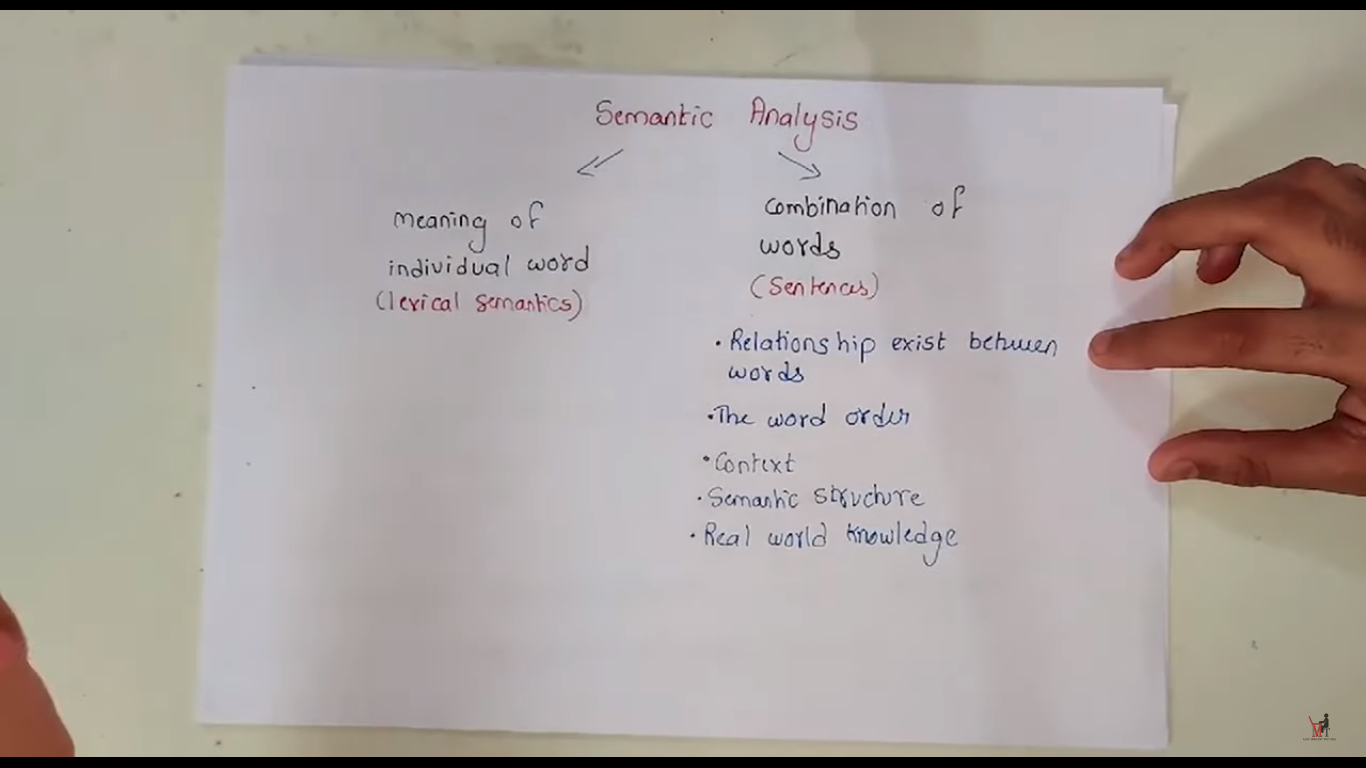 Semantic Analysis
meaning of
individual word
(lexical semantics)
combination of
words
(Sentences)
• Relationship exist between
words
• The word order
• Context
• Semantic structure
• Real world knowledge